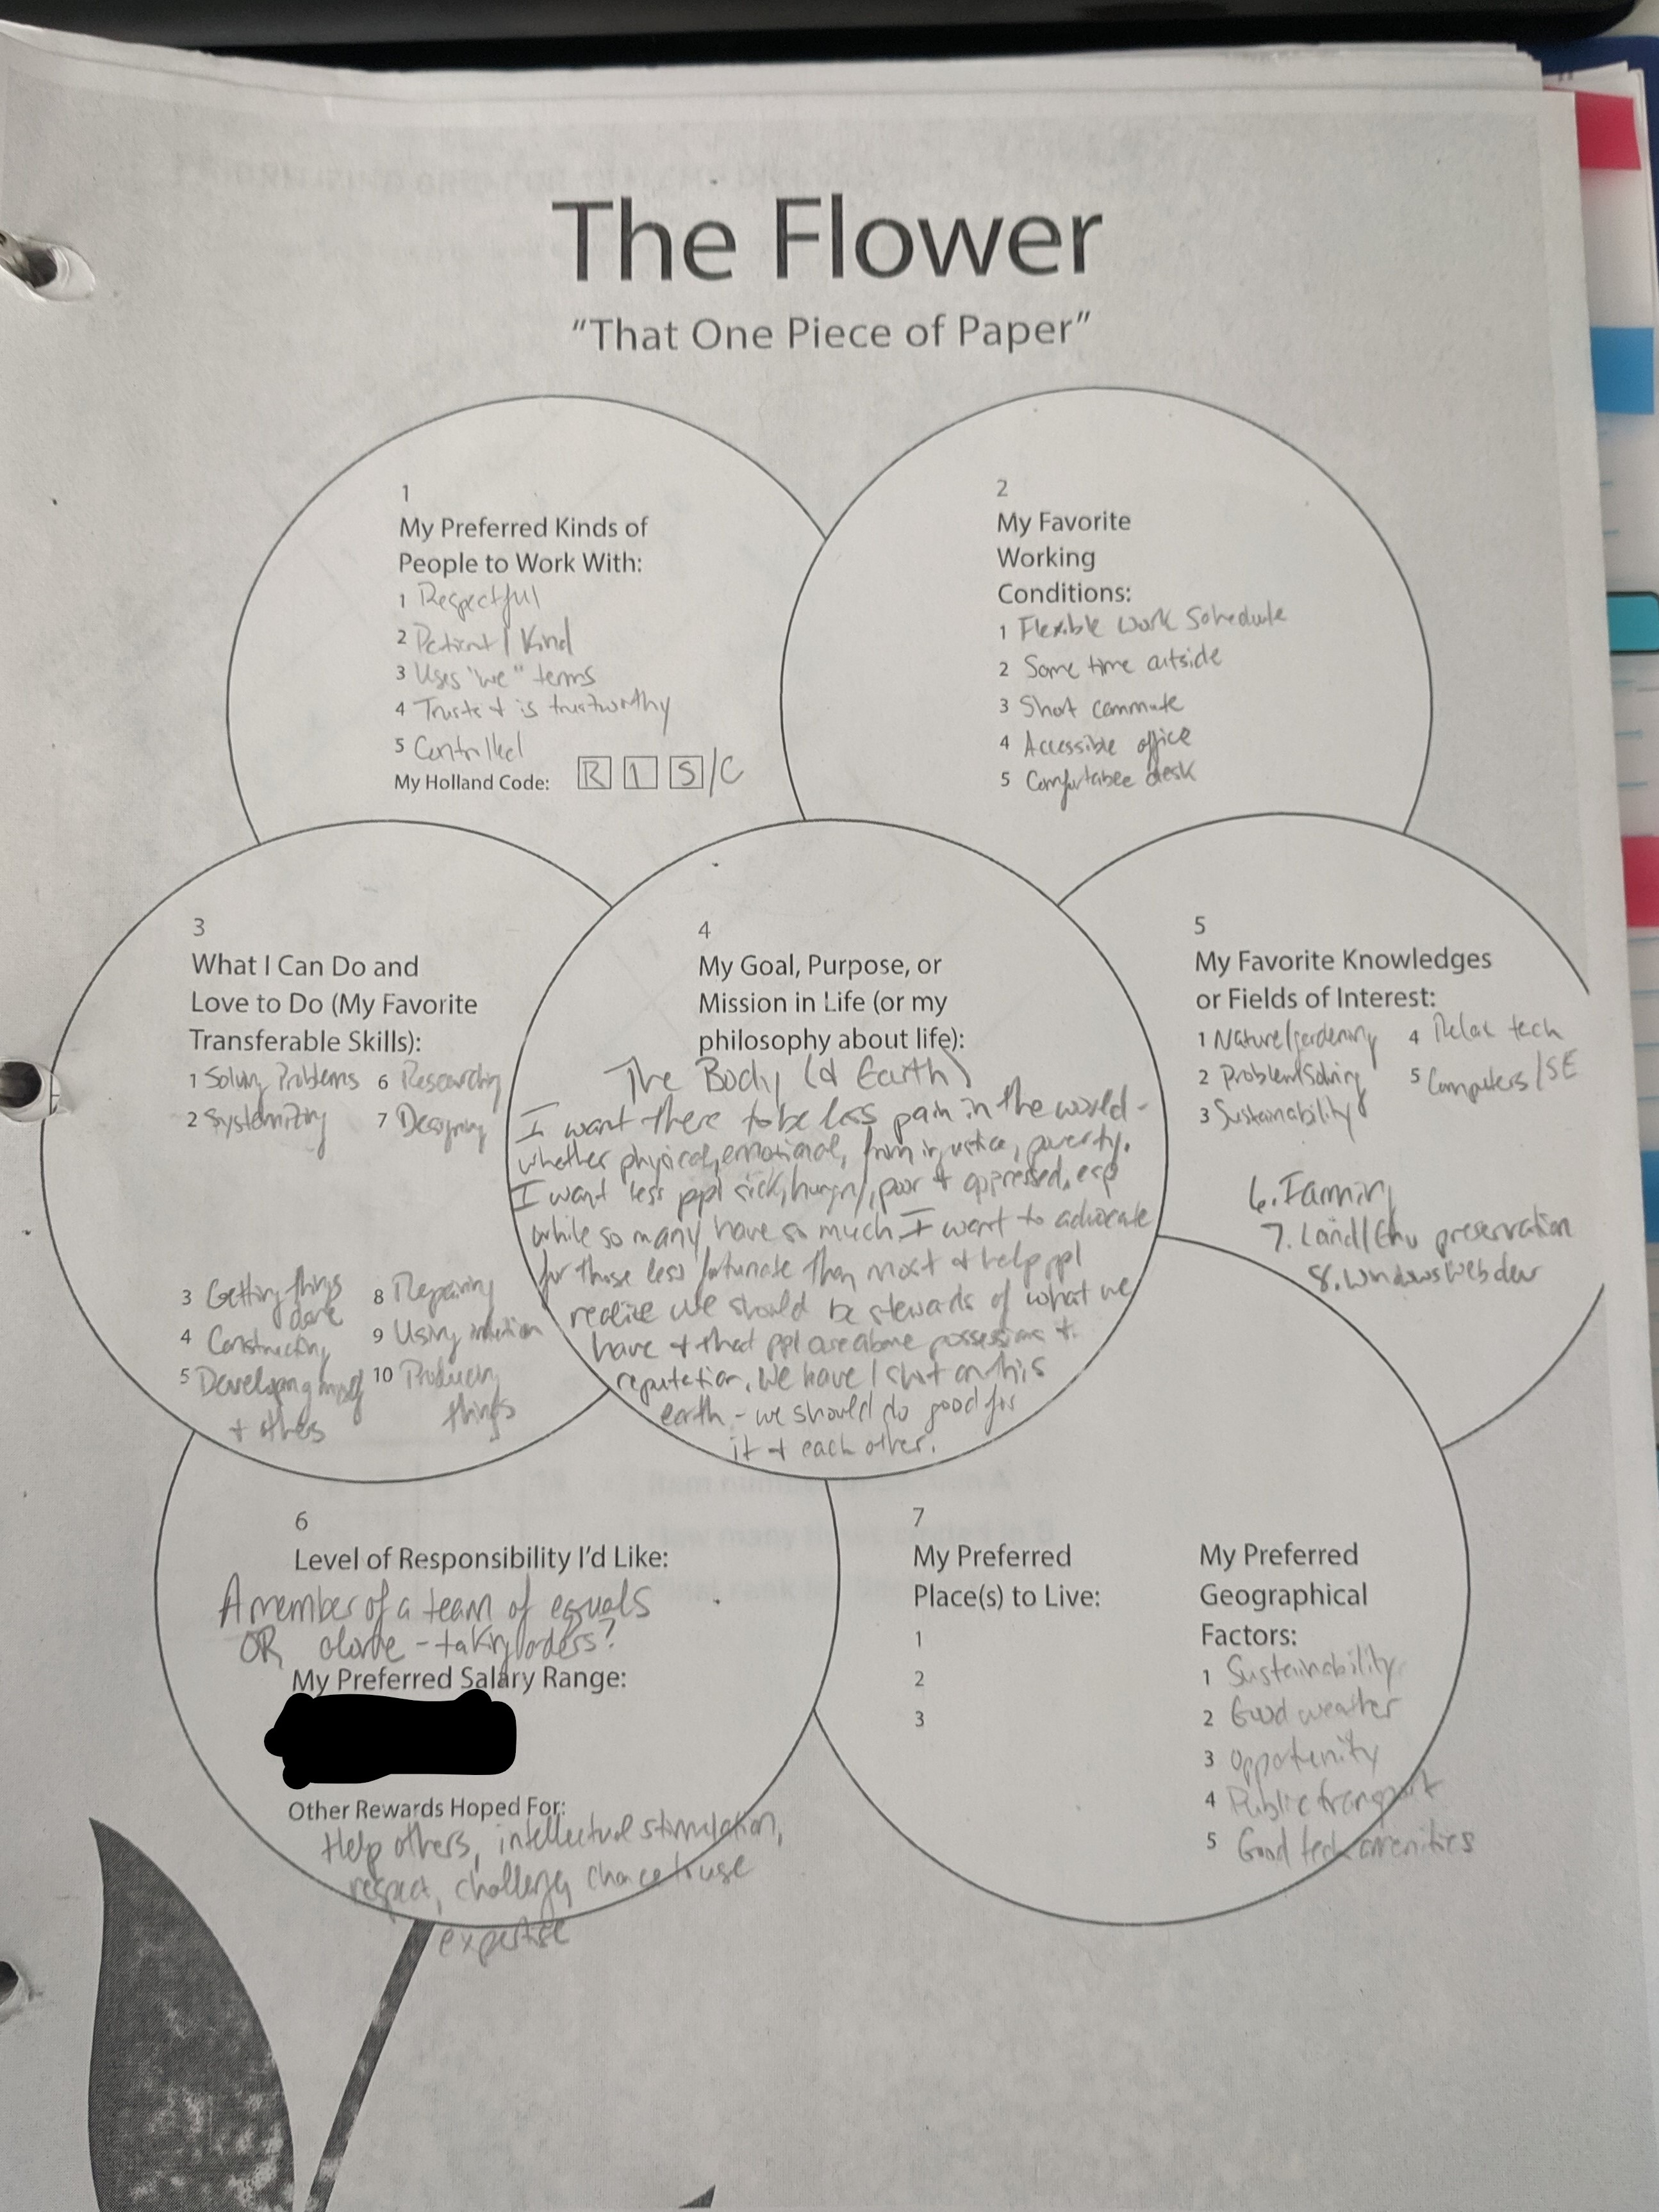 The Flower
"That One Piece of Paper"
1
My Preferred Kinds of
People to Work With:
1 Respectful
2 Patient / Kind
3 Uses "we" terms
4 Trusts + is trustworthy
5 Controlled
My Holland Code: R I S /C
2
My Favorite
Working
Conditions:
1 Flexible work schedule
2 Some time outside
3 Short commute
4 Accessible office
5 Comfortabee desk
3
What I Can Do and
Love to Do (My Favorite
Transferable Skills):
1 Solving Problems 6 Researching
2 Systemizing 7 Designing
3 Getting things
done
8 Repairing
4 Constructing 9 Using intuition
5 Developing myself
+ others
10 Producing
things
4
My Goal, Purpose, or
Mission in Life (or my
philosophy about life):
The Body (& Earth)
I want there to be less pain in the world -
whether physical, emotional, from injustice, poverty.
I want less ppl sick, hungry, poor + oppressed, esp
while so many have so much I want to advocate
for those less fortunate than most + help ppl
realize we should be stewards of what we
have + that ppl are above possessions +
reputation. We have 1 shot on this
earth - we should do good for
it + each other.
5
My Favorite Knowledges
or Fields of Interest:
1 Nature/gardening 4 tech
2 Problem Solving 5 Computers/SE
3 Sustainability
6. Farming
7. Land/Env preservation
8. Windows web dev
6
Level of Responsibility I'd Like:
A member of a team of equals
OR alone - taking orders?
My Preferred Salary Range:
Other Rewards Hoped For:
Help others, intellectual stimulation,
respect, challenge, chance to use
expertise
7
My Preferred
Place(s) to Live:
1
2
3
My Preferred
Geographical
Factors:
1 Sustainability
2 Good weather
3 Opportunity
4 Public transport
5 Good tech amenities